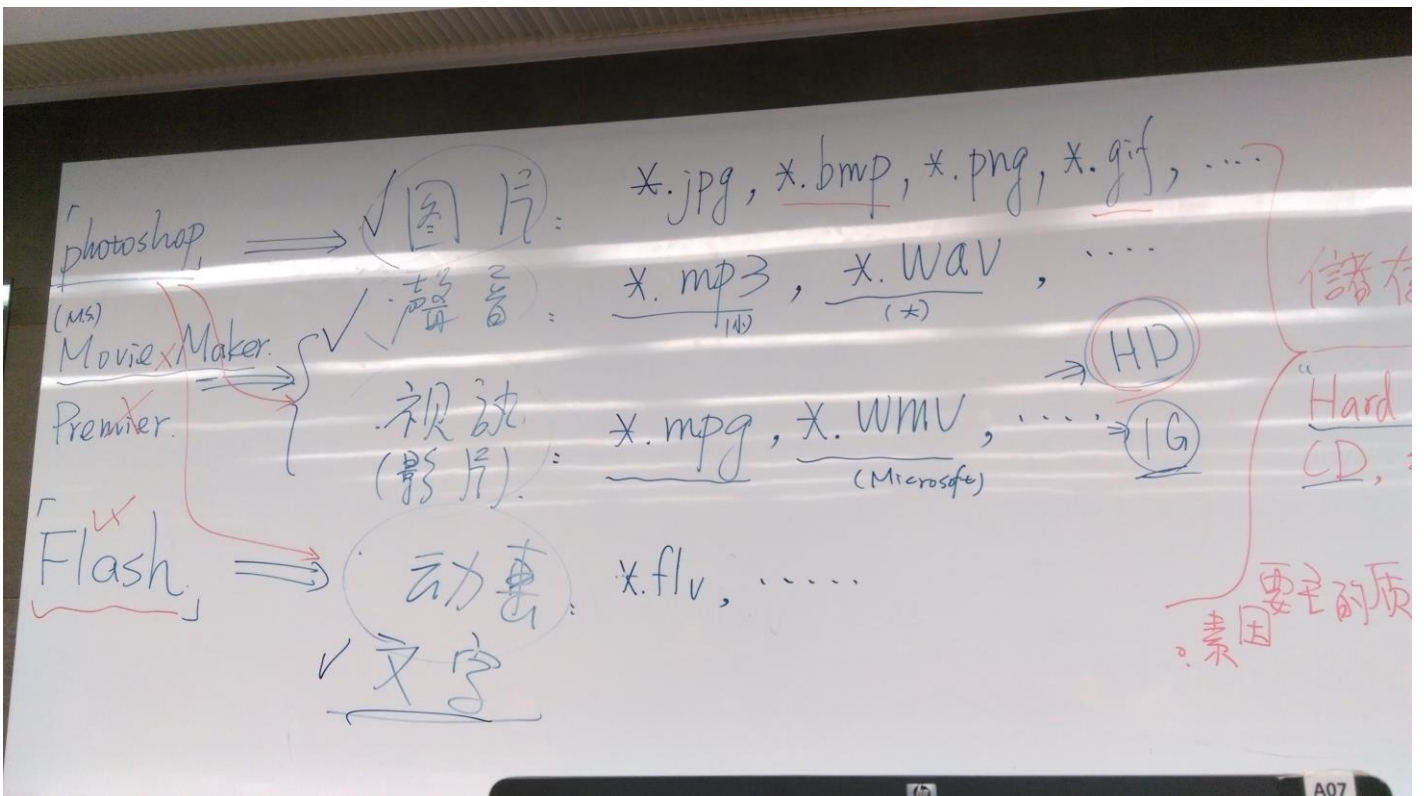 「photoshop」 ⇒ ✓图片: *.jpg, *.bmp, *.png, *.gif, .....
(MS)
Movie Maker. ⇒ { ✓聲音: *.mp3, *.wav, ....
(小) (大)
Premier.
视讯 *.mpg, *.wmv, ..... → HD
(影片): (Microsoft) → 1G
「Flash」 ⇒ 动畫: *.flv, .....
✓文字
儲存
"Hard
CD,
要主的质
。素因
hp
A07